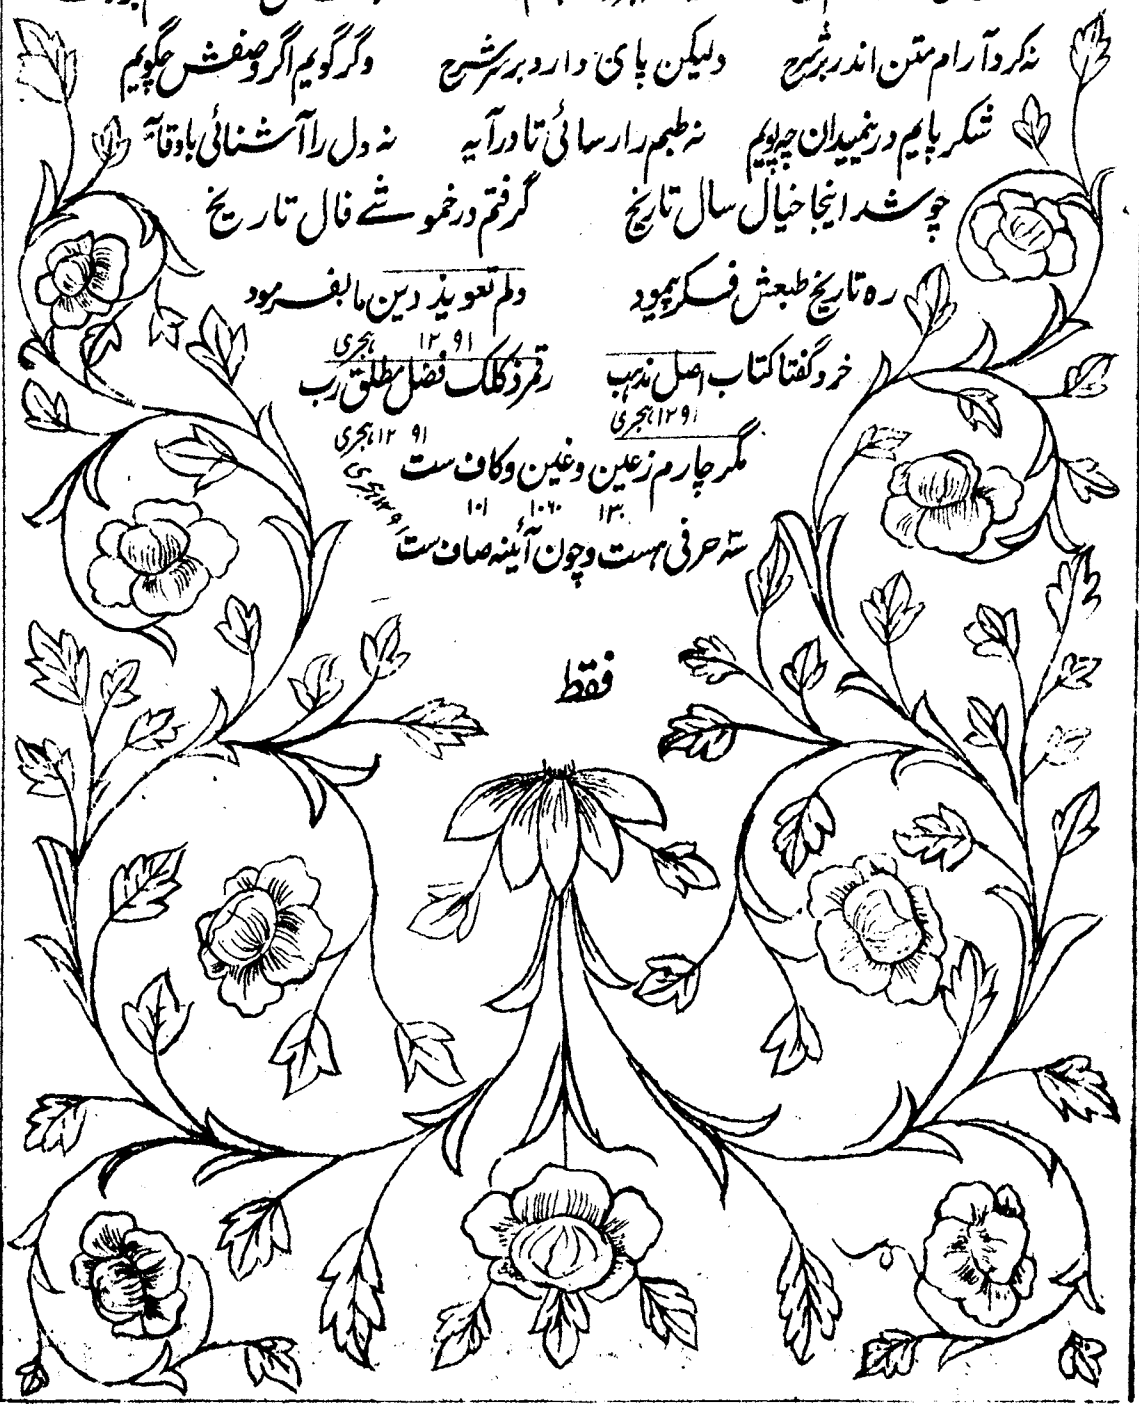 نه کرد آرام متن اندر بر شرح ولیکن پای دارد بر سر شرح وگر گویم اگر وصفش چگویم
شکر پایم درینمیدان چه پویم نه طبعم را رسائی تا درآیه نه دل را آشنائی با وقایه
چو شد اینجا خیال سال تاریخ گرفتم در خموشے فال تاریخ
ره تاریخ طبعش فکر پیمود دلم تعویذ دین ما بفرمود
۱۲۹۱ هجری
خرد گفتا کتاب اصل مذهب رقمزد کلک فضل مطلق رب
۱۲۹۱ هجری
۱۲۹۱ هجری
مگر چارم ز عین و غین و کاف ست
۱۳۰ ۱۰۶۰ ۱۰۱
۱۲۹۱ هجری
سه حرفی هست و چون آئینه صاف ست
فقط